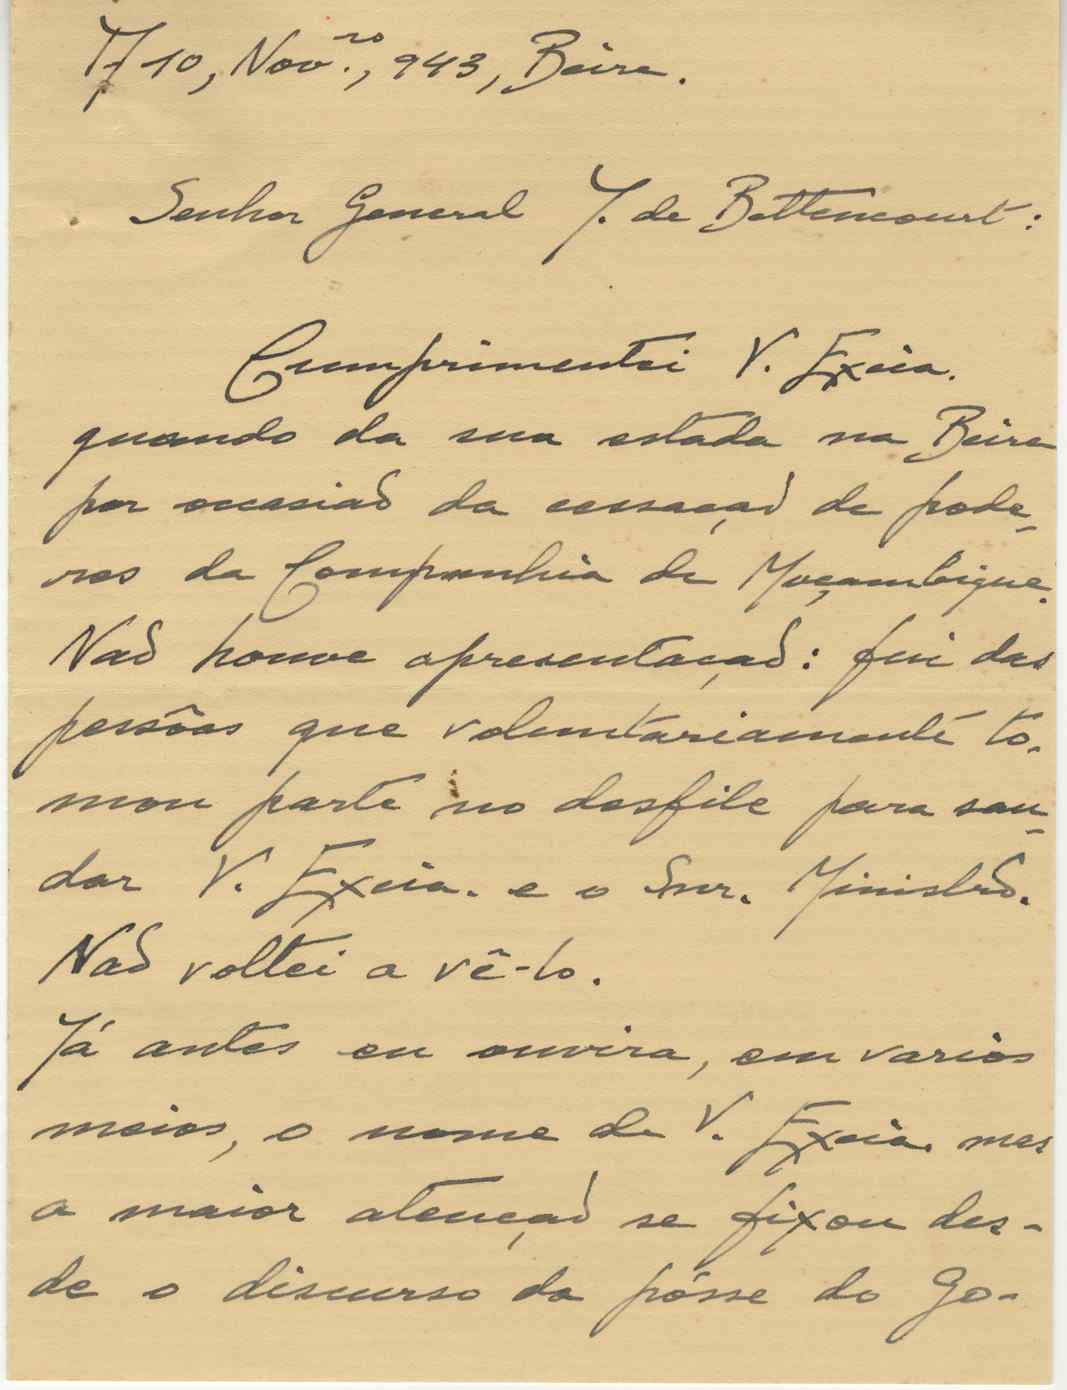 10, Nov.ro, 943, Beira.
Senhor General J. de Bettencourt:
Cumprimentei V. Excia.
quando da sua estada na Beira
por ocasiaõ da cessaçaõ de pode-
res da Companhia de Moçambique.
Naõ houve apresentaçaõ: fui das
pessôas que voluntariamente to-
mou parte no desfile para sau-
dar V. Excia. e o Snr. Ministro.
Naõ voltei a vê-lo.
Já antes eu ouvira, em varios
meios, o nome de V. Excia. mas
a maior atençaõ se fixou des-
de o discurso da pósse do Go-